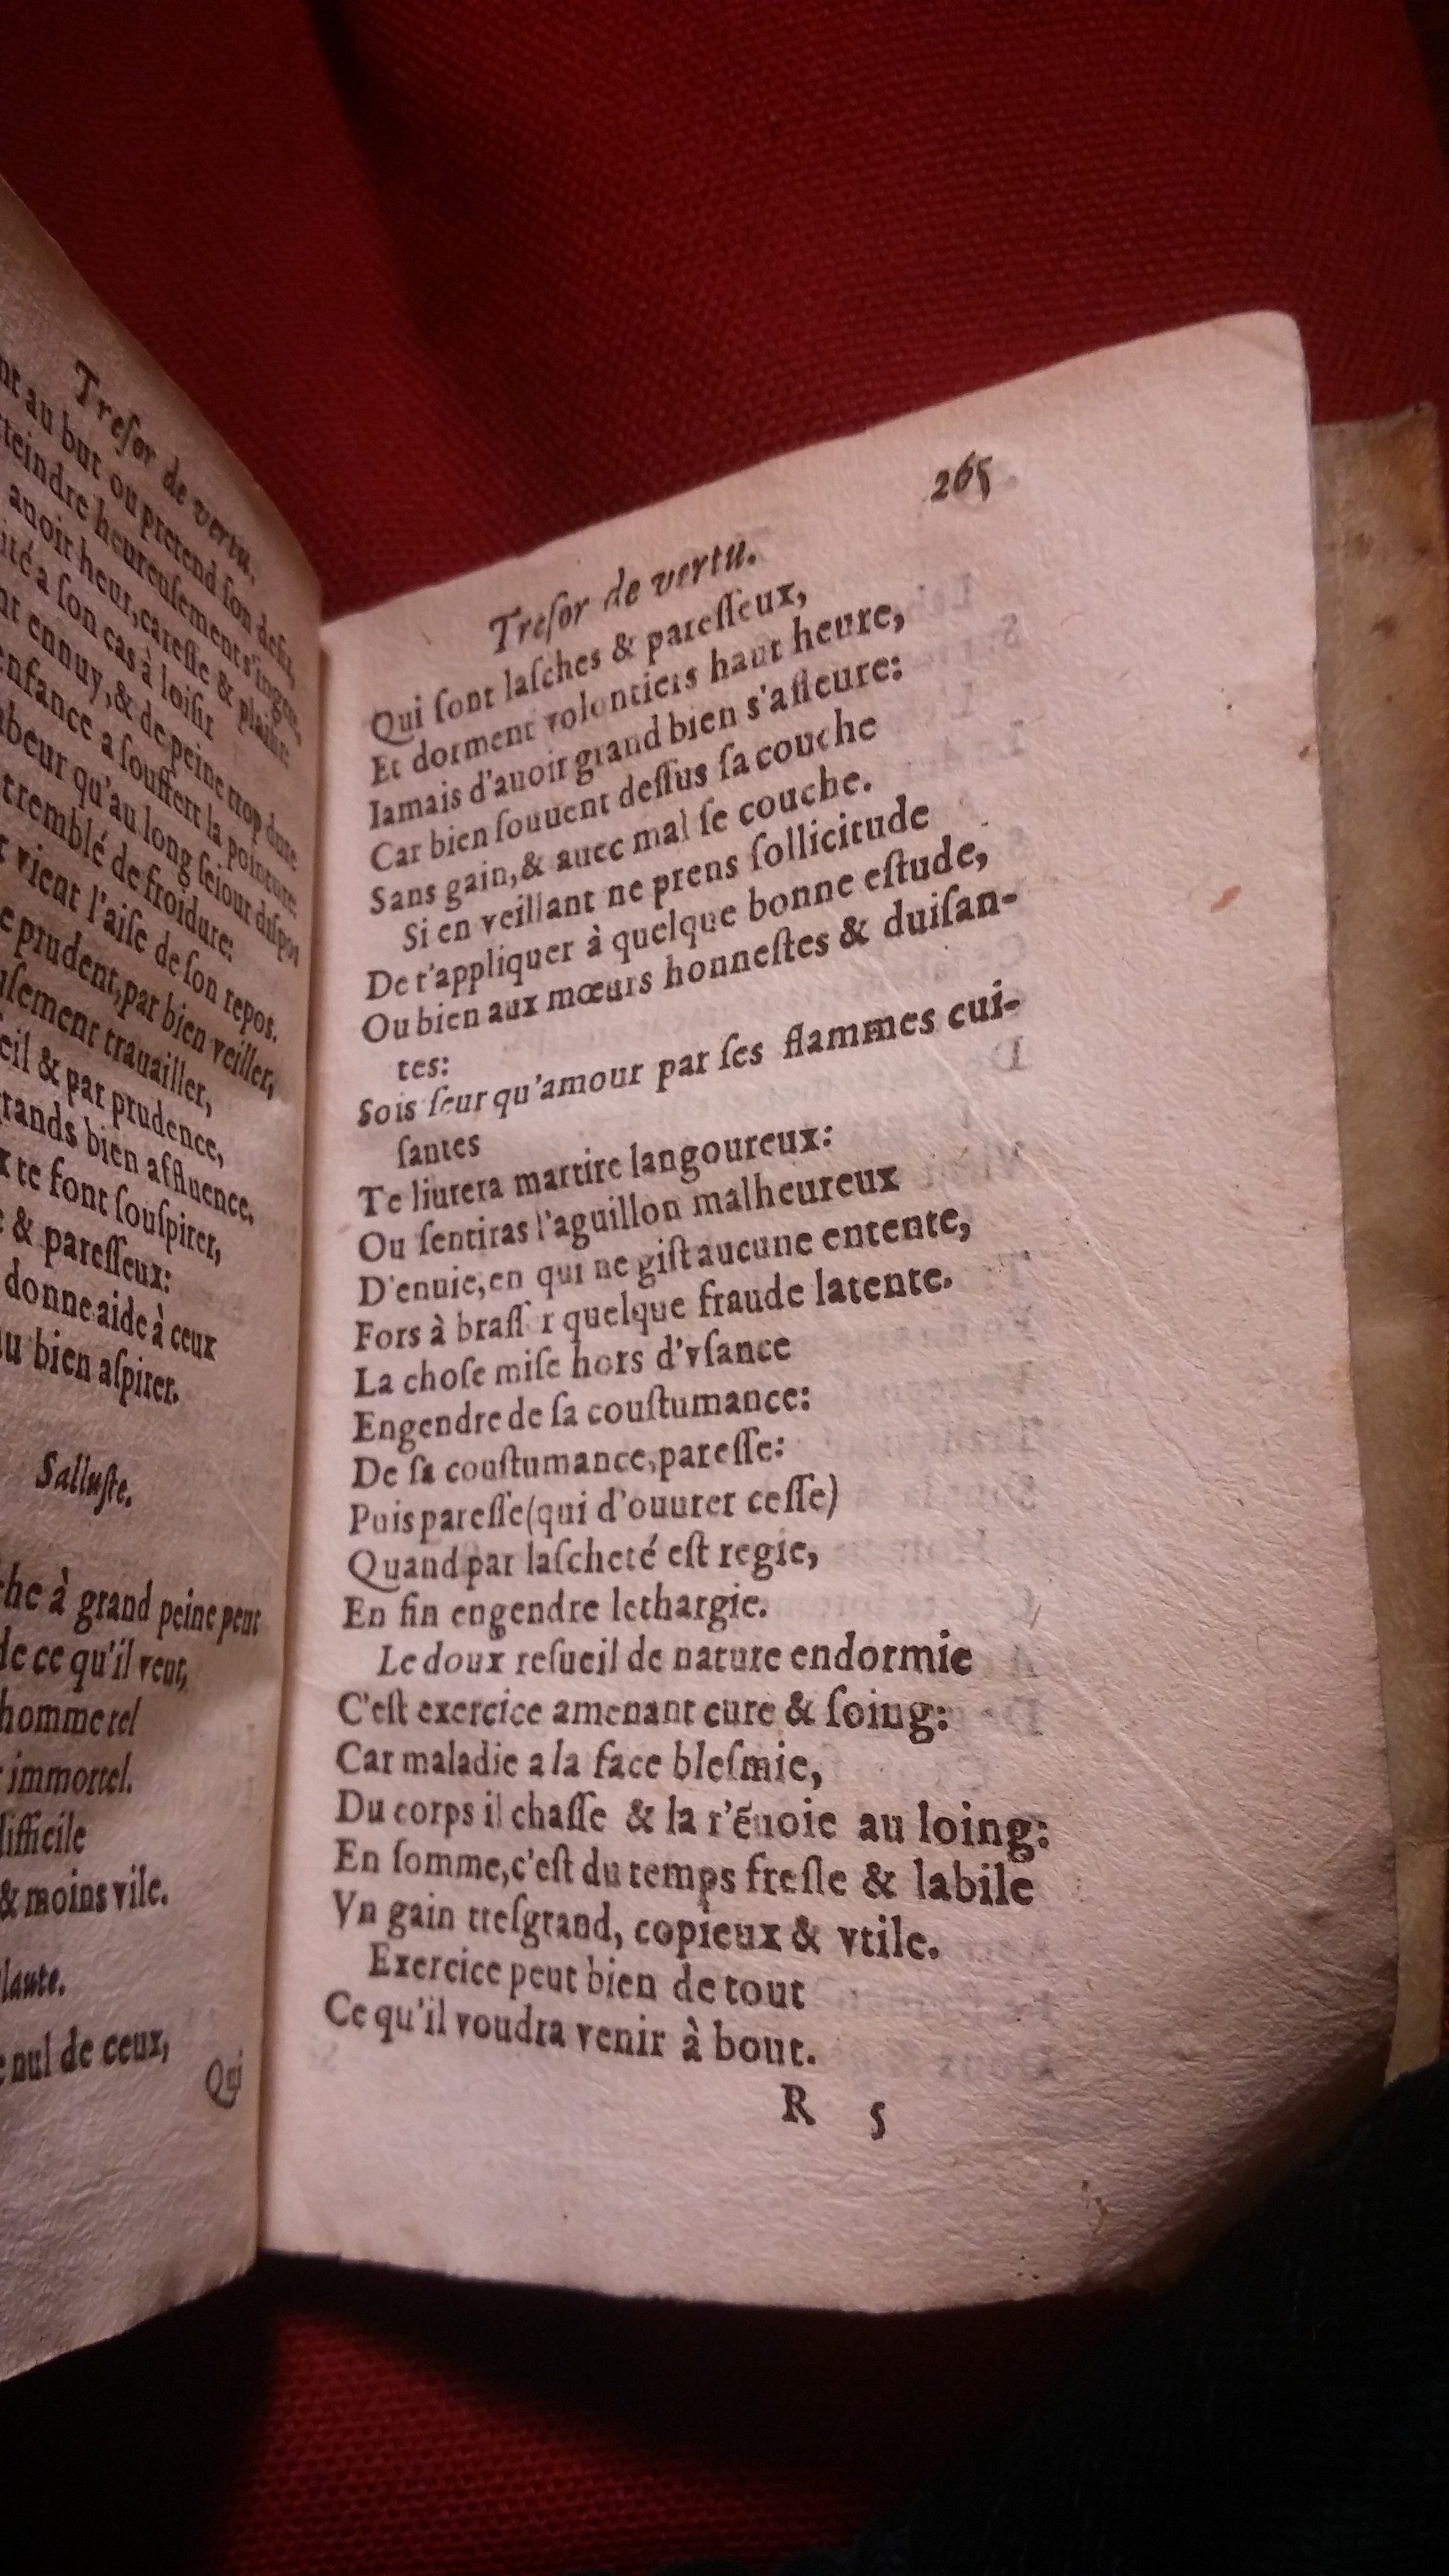 Treſor de vertu.
nt au but ou pretend ſon deſir,
tteindre heureuſement s'ingere,
auoir heur, careſſe & plaiſir
ité a ſon cas à loiſir
nt ennuy, & de peine trop dure.
enfance a ſouffert la pointure
beur qu'au long ſeiour diſpos
tremblé de froidure:
vient l'aiſe de ſon repos.
e prudent, par bien veiller,
uſement trauailler,
eil & par prudence,
rands bien affluence.
x te font ſouſpirer,
e & pareſſeux:
donne aide à ceux
au bien aſpirer.
Salluſte.
che à grand peine peut
de ce qu'il veut,
homme tel
immortel.
difficile
& moins vile.
laute.
e nul de ceux,
Qui
265
Treſor de vertu.
Qui ſont laſches & pareſſeux,
Et dorment volontiers haut heure,
Iamais d'auoir grand bien s'aſſeure:
Car bien ſouuent deſſus ſa couche
Sans gain, & auec mal ſe couche.
Si en veillant ne prens ſollicitude
De t'appliquer à quelque bonne eſtude,
Ou bien aux mœurs honneſtes & duiſan-
tes:
Sois ſeur qu'amour par ſes flammes cui-
ſantes
Te liurera martire langoureux:
Ou ſentiras l'aguillon malheureux
D'enuie, en qui ne giſt aucune entente,
Fors à braſſ r quelque fraude latente.
La choſe miſe hors d'vſance
Engendre de ſa couſtumance:
De ſa couſtumance, pareſſe:
Puis pareſſe (qui d'ouurer ceſſe)
Quand par laſcheté eſt regie,
En fin engendre lethargie.
Le doux reſueil de nature endormie
C'eſt exercice amenant cure & ſoing:
Car maladie a la face bleſmie,
Du corps il chaſſe & la r'ẽuoie au loing:
En ſomme, c'eſt du temps freſle & labile
Vn gain treſgrand, copieux & vtile.
Exercice peut bien de tout
Ce qu'il voudra venir à bout.
R 5